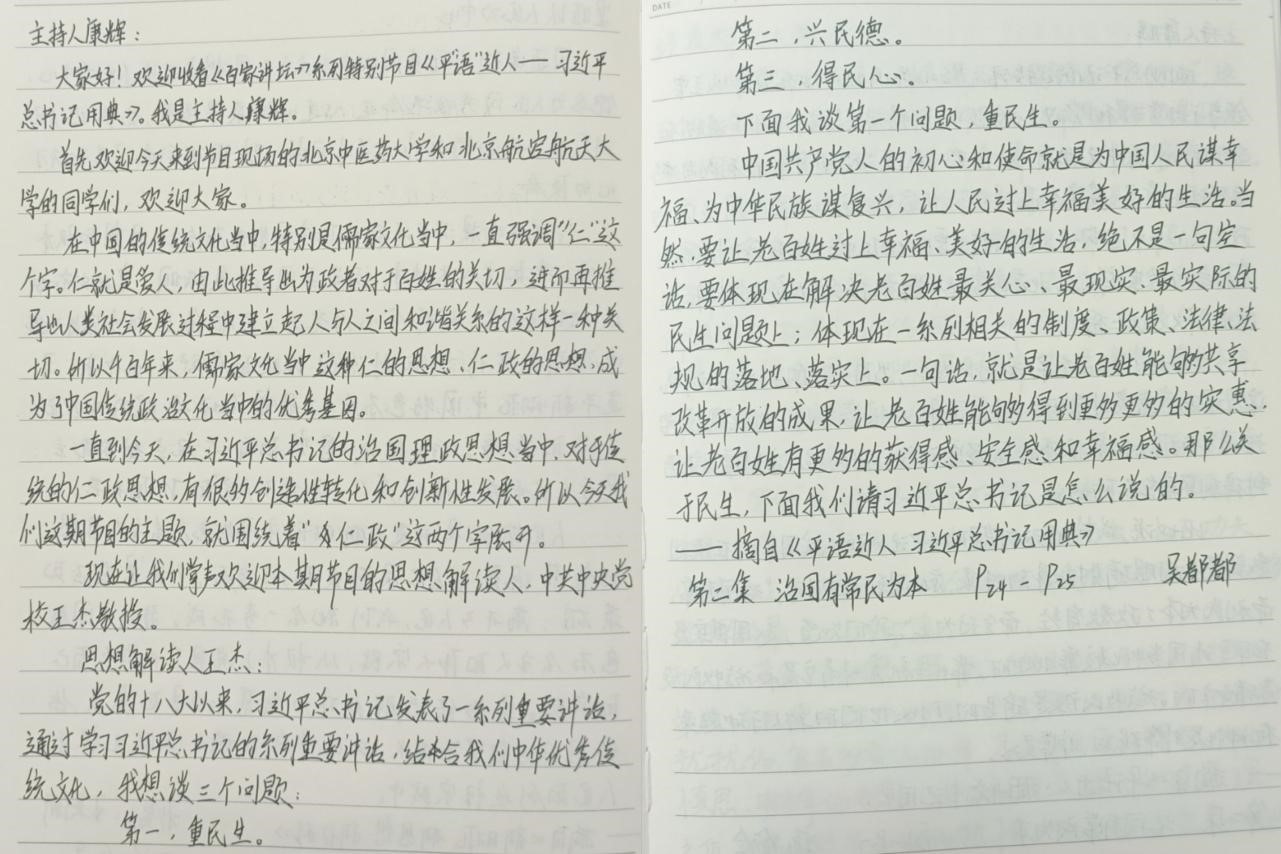 主持人康辉:
大家好!欢迎收看《百家讲坛》系列特别节目《“平语”近人——习近平
总书记用典》。我是主持人康辉。
首先欢迎今天来到节目现场的北京中医药大学和北京航空航天大
学的同学们,欢迎大家。
在中国的传统文化当中,特别是儒家文化当中,一直强调“仁”这
个字。仁就是爱人,由此推导出为政者对于百姓的关切,进而再推
导出人类社会发展过程中建立起人与人之间和谐关系的这样一种关
切。所以千百年来,儒家文化当中这种仁的思想、仁政的思想,成
为了中国传统政治文化当中的优秀基因。
一直到今天,在习近平总书记的治国理政思想当中,对于传
统的仁政思想,有很多创造性转化和创新性发展。所以今天我
们这期节目的主题,就围绕着“仁政”这两个字展开。
现在让我们掌声欢迎本期节目的思想解读人,中共中央党
校王杰教授。
思想解读人王杰:
党的十八大以来,习近平总书记发表了一系列重要讲话,
通过学习习近平总书记的系列重要讲话,结合我们中华优秀传
统文化,我想谈三个问题:
第一,重民生。
DATE
第二,兴民德。
第三,得民心。
下面我谈第一个问题,重民生。
中国共产党人的初心和使命就是为中国人民谋幸
福、为中华民族谋复兴,让人民过上幸福美好的生活。当
然,要让老百姓过上幸福、美好的生活,绝不是一句空
话,要体现在解决老百姓最关心、最现实、最实际的
民生问题上,体现在一系列相关的制度、政策、法律、法
规的落地、落实上。一句话,就是让老百姓能够共享
改革开放的成果,让老百姓能够得到更多更多的实惠,
让老百姓有更多的获得感、安全感和幸福感。那么关
于民生,下面我们请习近平总书记是怎么说的。
——摘自《平语近人 习近平总书记用典》
第二集 治国有常民为本 P24-P25 吴都都